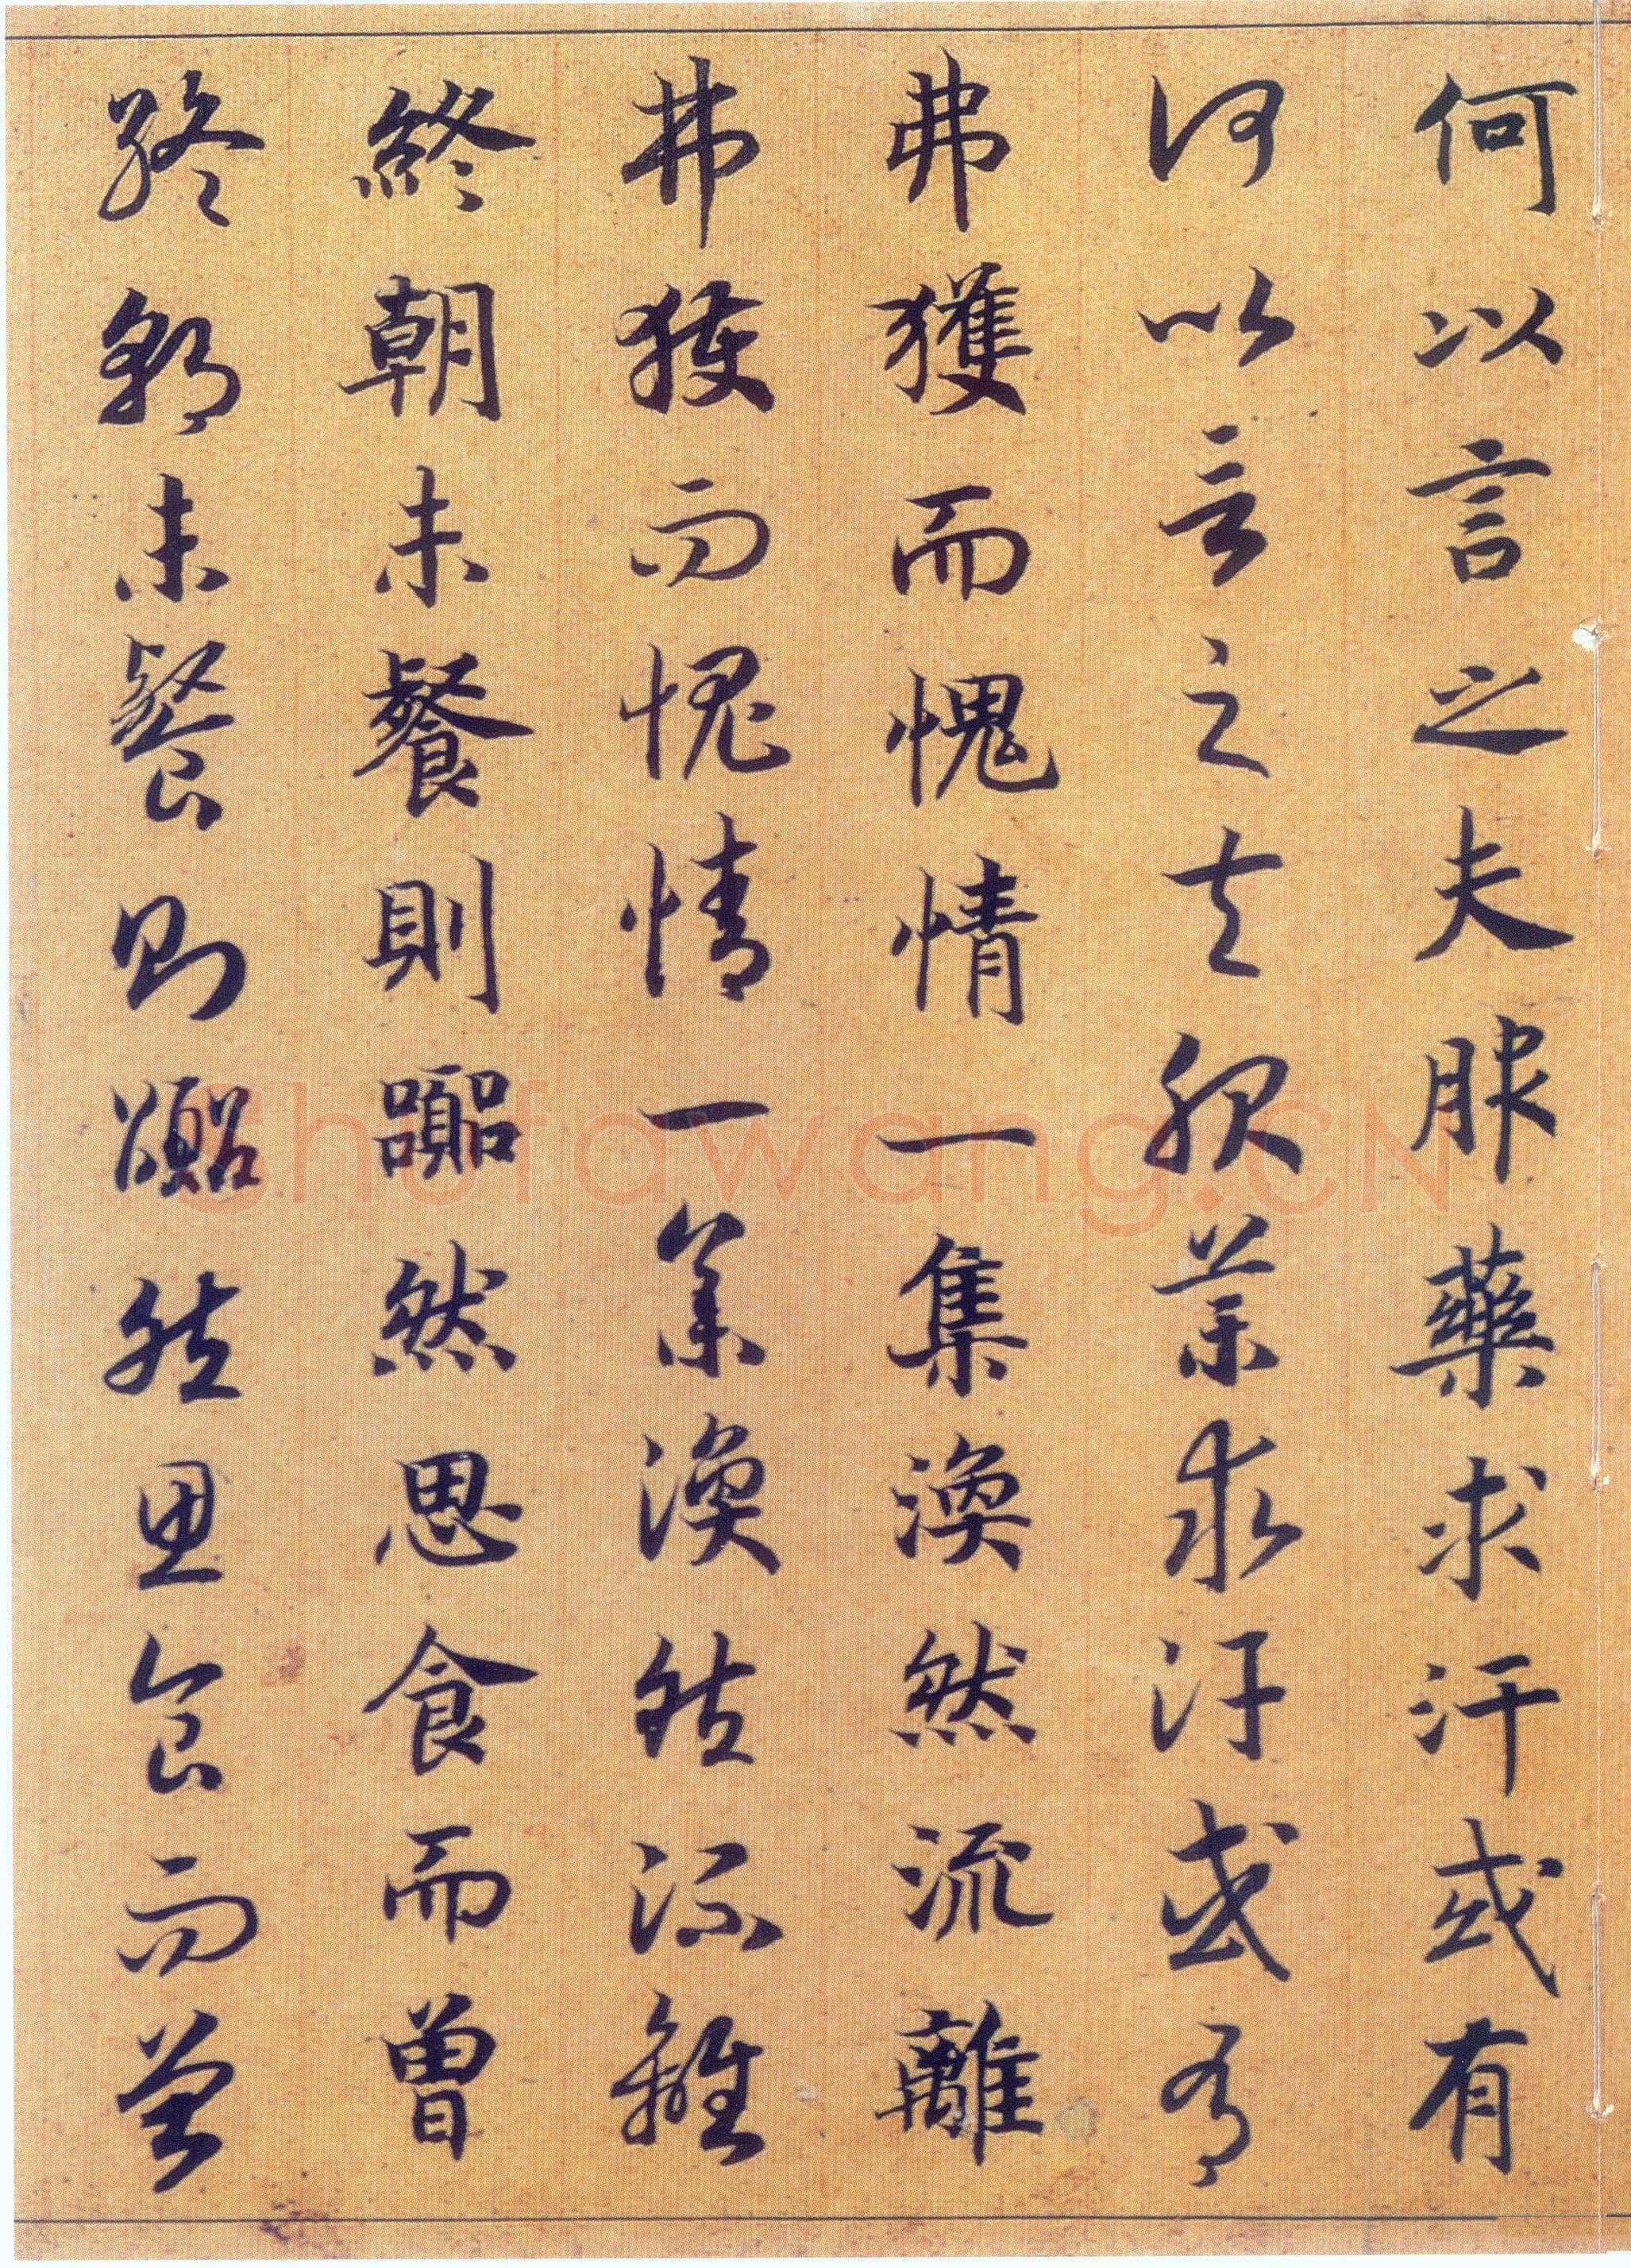 何以言之夫服藥求汗或有
何以言之夫服藥求汗或有
弗獲而愧情一集渙然流離
弗獲而愧情一集渙然流離
終朝未餐則囂然思食而曾
終朝未餐則囂然思食而曾
Shufawang.CN